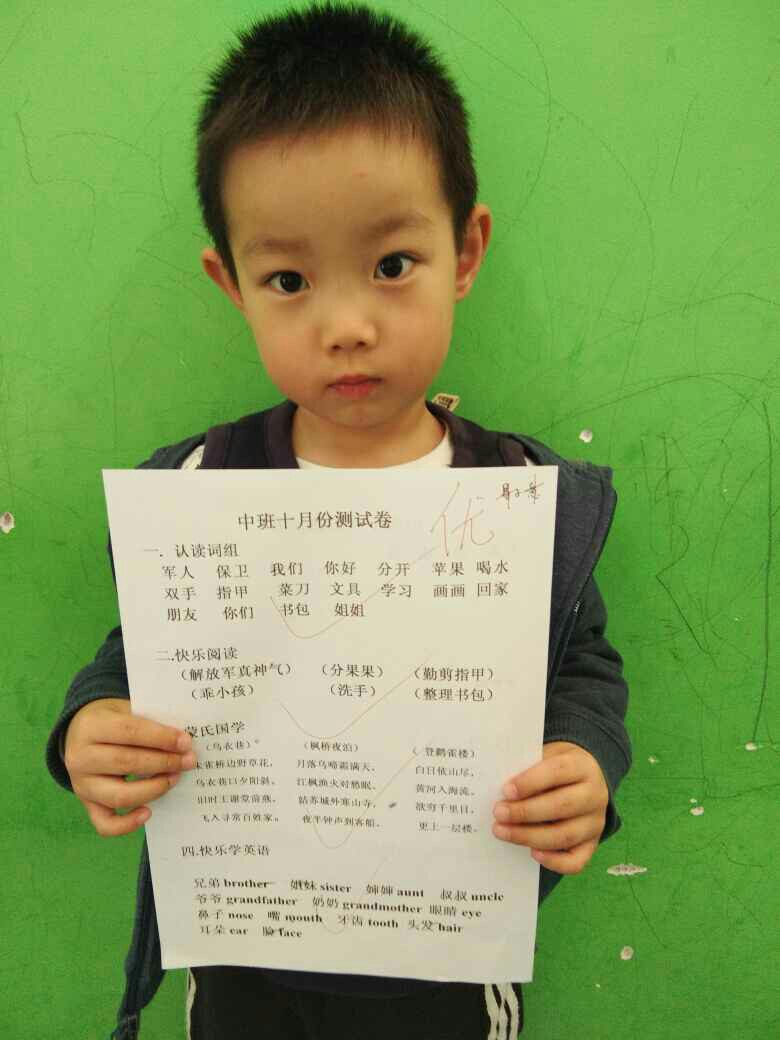 优
中班十月份测试卷
一．认读词组
军人 保卫 我们 你好 分开 苹果 喝水
双手 指甲 菜刀 文具 学习 画画 回家
朋友 你们 书包 姐姐
二.快乐阅读
（解放军真神气） （分果果） （勤剪指甲）
（乖小孩） （洗手） （整理书包）
蒙氏国学
（乌衣巷） （枫桥夜泊） （登鹳雀楼）
朱雀桥边野草花， 月落乌啼霜满天， 白日依山尽，
乌衣巷口夕阳斜。 江枫渔火对愁眠。 黄河入海流。
旧时王谢堂前燕， 姑苏城外寒山寺， 欲穷千里目，
飞入寻常百姓家。 夜半钟声到客船。 更上一层楼。
四.快乐学英语
兄弟 brother 姐妹 sister 婶婶 aunt 叔叔 uncle
爷爷 grandfather 奶奶 grandmother 眼睛 eye
鼻子 nose 嘴 mouth 牙齿 tooth 头发 hair
耳朵 ear 脸 face